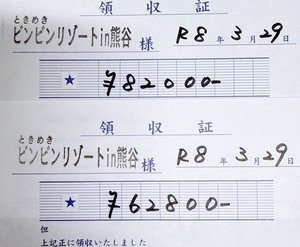 領収証
ときめき
ピンピンリゾートin熊谷 様 R8年3月29日
★ ¥82000-
領収証
ときめき
ピンピンリゾートin熊谷 様 R8年3月29日
★ ¥62800-
但
上記正に領収いたしました